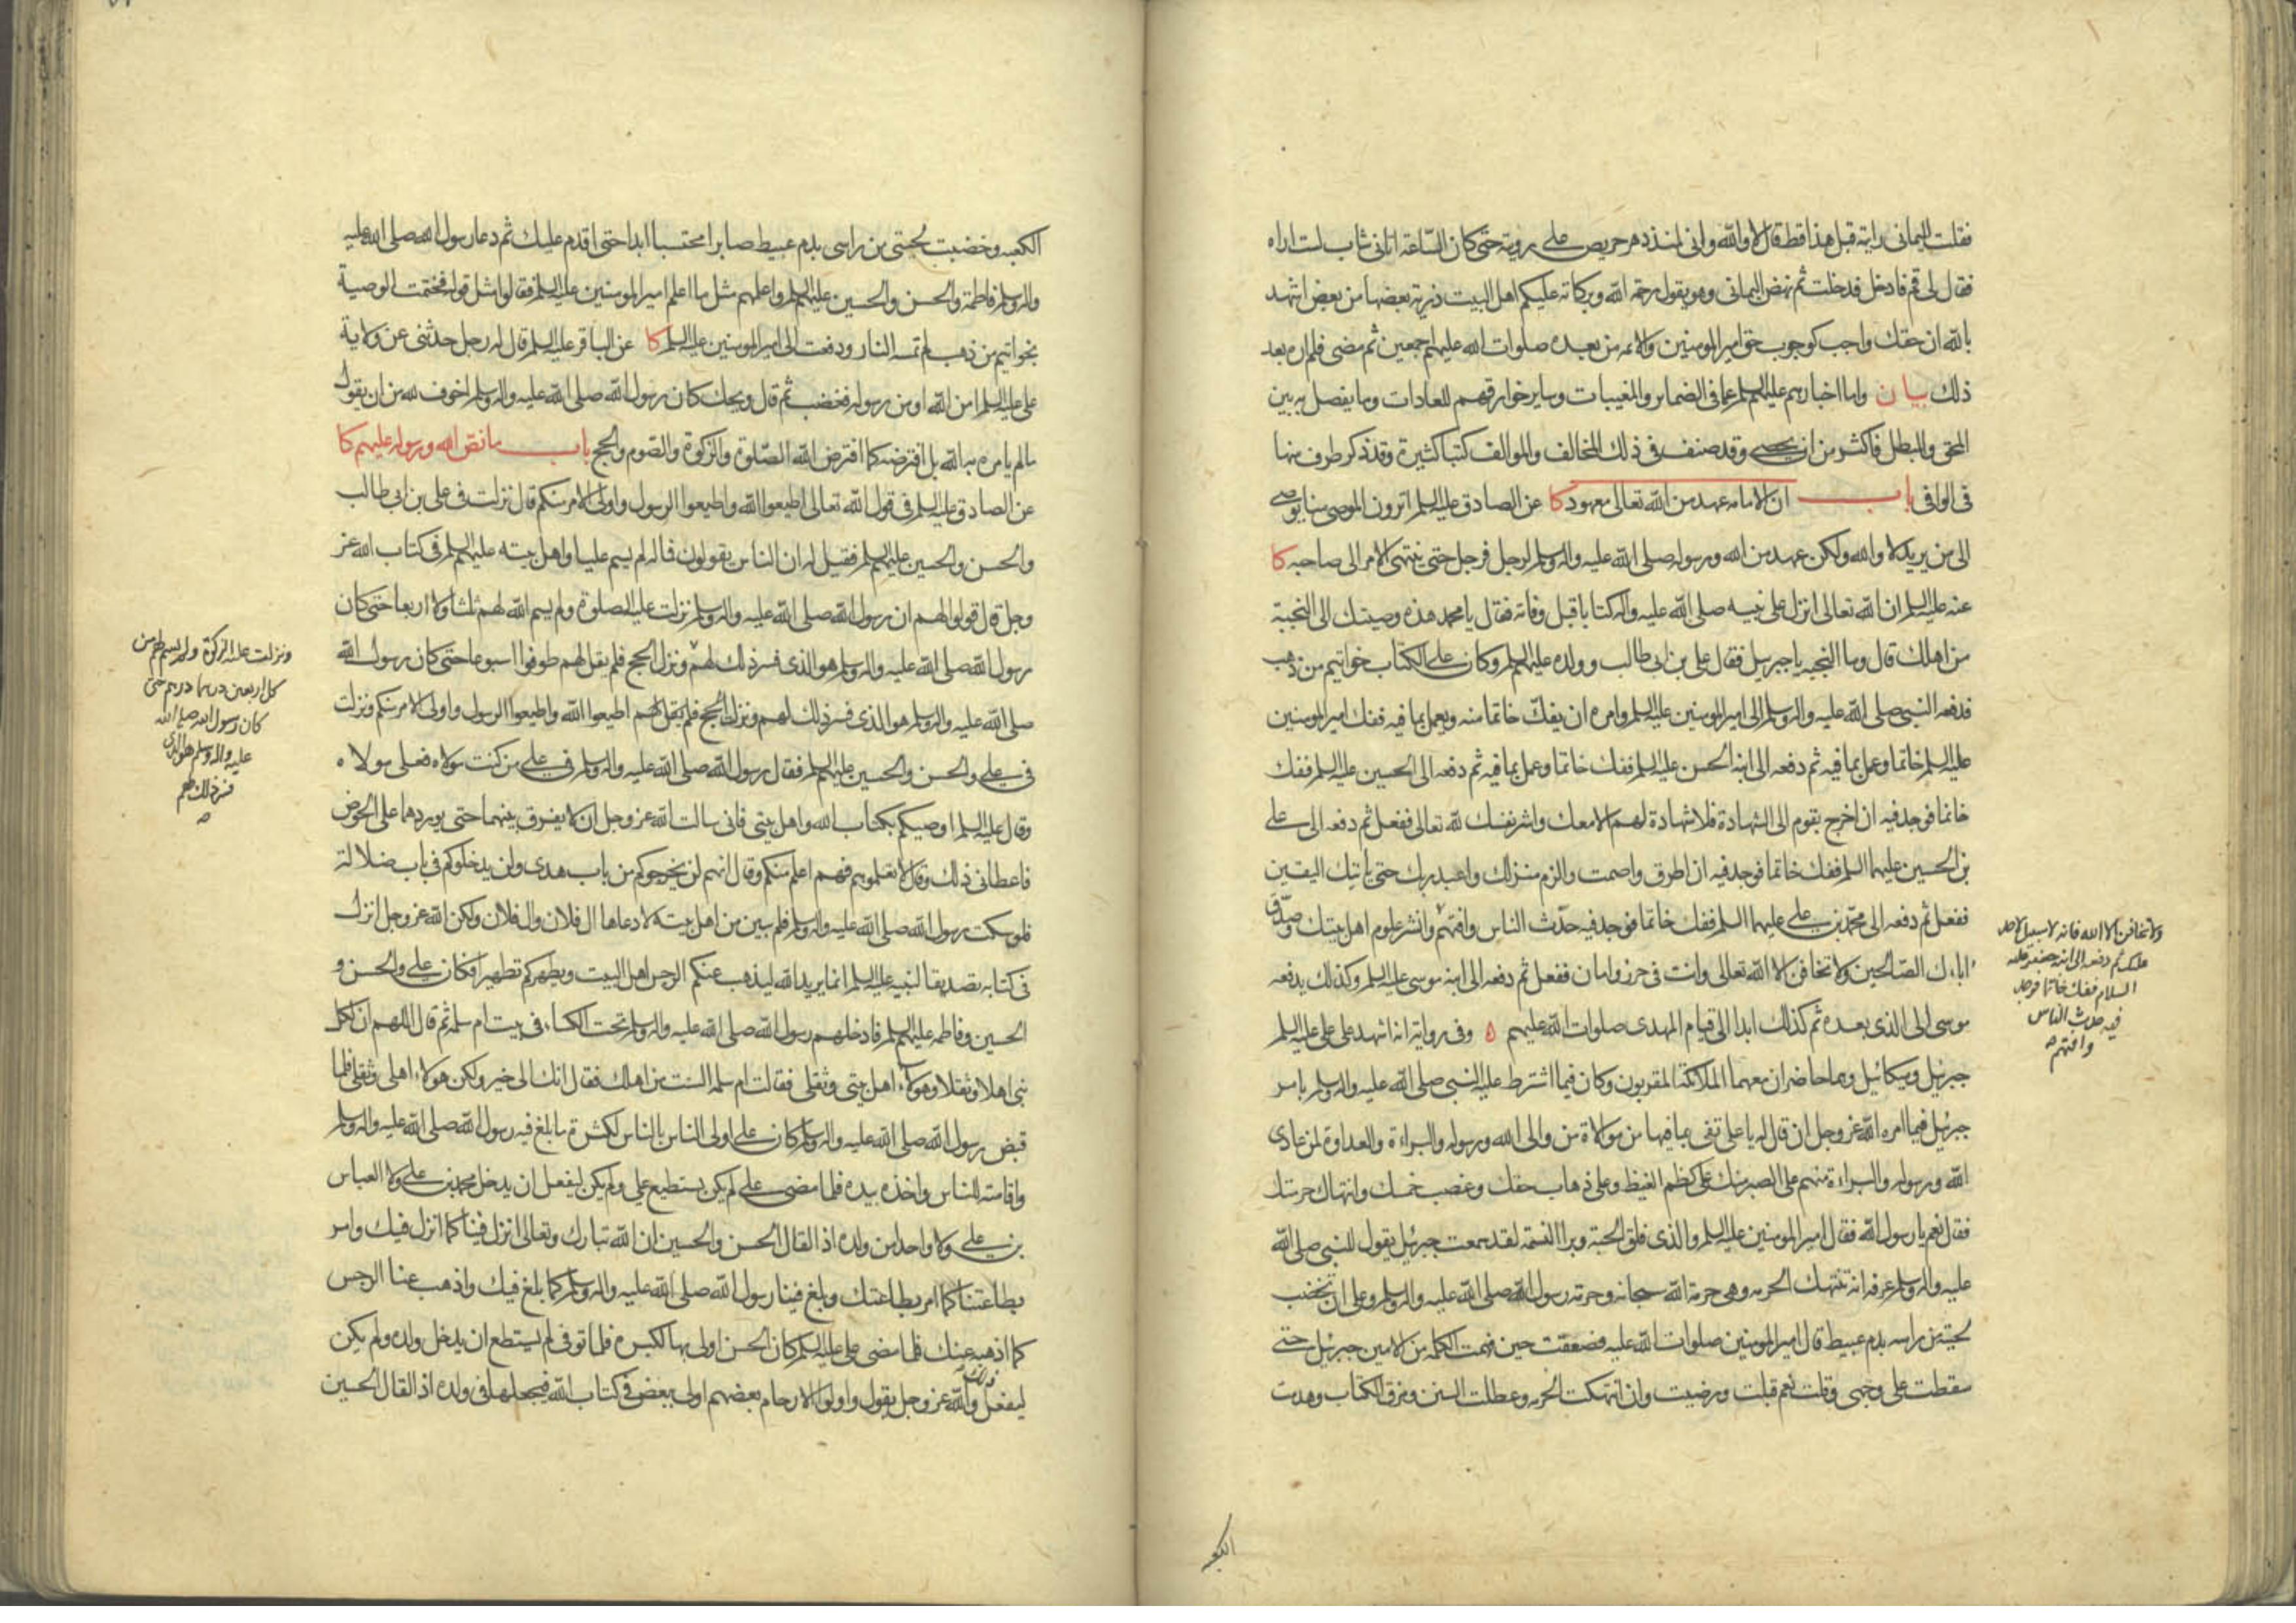 فقلت لليماني رايته قبل هذا قط قال لا والله واني لمنذ دهر حريص على رويته حتى كان الساعة اتاني شاب لست اراه
فقال لي قم فادخل فدخلت ثم نهض اليماني وهو يقول رحمة الله وبركاته عليكم اهل البيت ذرية بعضها من بعض اشهد
بالله ان حقك واجب كوجوب حق امير المومنين والائمه من بعده صلوات الله عليهم اجمعين ثم مضى فلم اره بعد
ذلك بيان واما اخبارهم عليهم السلم عما في الضماير والمغيبات وساير خوارقهم للعادات وما يفصل به بين
المحق والمبطل فاكثر من ان يحصى وقد صنف في ذلك المخالف والموالف كتبا كثيرة وقد ذكر طرف منها
في الوافي باب ان الامامه عهد من الله تعالى معهود كا عن الصادق عليه السلم اترون الموصي منا يوصي
الى من يريد لا والله ولكن عهد من الله ورسوله صلى الله عليه واله وسلم لرجل فرجل حتى ينتهي الامر الى صاحبه كا
عنه عليه السلم ان الله تعالى انزل على نبيه صلى الله عليه واله كتابا قبل وفاته فقال يا محمد هذه وصيتك الى النجبة
من اهلك قال وما النجبه يا جبريل فقال علي بن ابي طالب وولده عليهم السلم وكان على الكتاب خواتيم من ذهب
فدفعه النبي صلى الله عليه واله وسلم الى امير المومنين عليه السلم وامره ان يفك خاتما منه ويعمل بما فيه ففك امير المومنين
عليه السلم خاتما وعمل بما فيه ثم دفعه الى ابنه الحسن عليه السلم ففك خاتما وعمل بما فيه ثم دفعه الى الحسين عليه السلم ففك
خاتما فوجد فيه ان اخرج بقوم الى الشهادة فلا شهادة لهم الا معك واشر نفسك لله تعالى ففعل ثم دفعه الى علي
بن الحسين عليهما السلم ففك خاتما فوجد فيه ان اطرق واصمت والزم منزلك واعبد ربك حتى ياتيك اليقين
ففعل ثم دفعه الى محمد بن علي عليهما السلم ففك خاتما فوجد فيه حدث الناس وافتهم وانشر علوم اهل بيتك وصدق
اباءك الصالحين ولا تخافن الا الله تعالى وانت في حرز وامان ففعل ثم دفعه الى ابنه موسى عليه السلم وكذلك يدفعه
موسى الى الذي بعده ثم كذلك ابدا الى قيام المهدي صلوات الله عليهم ه وفي رواية انه اشهد على علي عليه السلم
جبرئيل وميكائيل وهما حاضران معهما الملائكة المقربون وكان فيما اشترط عليه النبي صلى الله عليه واله وسلم بامر
جبرئيل فيما امره الله عز وجل ان قال له يا علي تفي بما فيها من موالاة من والى الله ورسوله والبراءة والعداوة لمن عادى
الله ورسوله والبراءة منهم على الصبر منك على كظم الغيظ وعلى ذهاب حقك وغصب خمسك وانتهاك حرمتك
فقال نعم يا رسول الله فقال امير المومنين عليه السلم والذي فلق الحبة وبرا النسمة لقد سمعت جبرئيل يقول للنبي صلى الله
عليه واله وسلم عرفه انه تنتهك الحرمه وهي حرمة الله سبحانه وحرمة رسول الله صلى الله عليه واله وسلم وعلى ان تخضب
لحيته من راسه بدم عبيط قال امير المومنين صلوات الله عليه فصعقت حين فهمت الكلمة من الامين جبرئيل حتى
سقطت على وجهي وقلت نعم قبلت ورضيت وان انتهكت الحرمه وعطلت السنن ومزق الكتاب وهدت
ولا تخافن الا الله فانه لا سبيل لاحد
عليك ثم دفعه الى ابنه جعفر عليه
السلام ففك خاتما فوجد
فيه حدث الناس
وافتهم
الكعبه
الكعبه وخضبت لحيتي من راسي بدم عبيط صابرا محتسبا ابدا حتى اقدم عليك ثم دعا رسول الله صلى الله عليه
واله وسلم فاطمة والحسن والحسين عليهم السلم واعلمهم مثل ما اعلم امير المومنين عليه السلم فقالوا مثل قوله فختمت الوصية
بخواتيم من ذهب لم تمسه النار ودفعت الى امير المومنين عليه السلم كا عن الباقر عليه السلم قال له رجل حدثني عن ولاية
علي عليه السلم امن الله او من رسوله فغضب ثم قال ويحك كان رسول الله صلى الله عليه واله وسلم اخوف لله من ان يقول
ما لم يامره به الله بل افترضه كما افترض الله الصلوة والزكوة والصوم والحج باب ما نص الله ورسوله عليهم كا
عن الصادق عليه السلم في قول الله تعالى اطيعوا الله واطيعوا الرسول واولي الامر منكم قال نزلت في علي بن ابي طالب
والحسن والحسين عليهم السلم فقيل له ان الناس يقولون فما له لم يسم عليا واهل بيته عليهم السلم في كتاب الله عز
وجل قال قولوا لهم ان رسول الله صلى الله عليه واله وسلم نزلت عليه الصلوة ولم يسم الله لهم ثلثا ولا اربعا حتى كان
رسول الله صلى الله عليه واله وسلم هو الذي فسر ذلك لهم ونزل الحج فلم يقل لهم طوفوا اسبوعا حتى كان رسول الله
صلى الله عليه واله وسلم هو الذي فسر ذلك لهم ونزل الحج فلم يقل لهم اطيعوا الله واطيعوا الرسول واولي الامر منكم ونزلت
في علي والحسن والحسين عليهم السلم فقال رسول الله صلى الله عليه واله وسلم في علي من كنت مولاه فعلي مولاه
وقال عليه السلم اوصيكم بكتاب الله واهل بيتي فاني سالت الله عز وجل ان لا يفرق بينهما حتى يوردهما على الحوض
فاعطاني ذلك وقال لا تعلموهم فهم اعلم منكم وقال انهم لن يخرجوكم من باب هدى ولن يدخلوكم في باب ضلالة
فلو سكت رسول الله صلى الله عليه واله وسلم فلم يبين من اهل بيته لادعاها ال فلان وال فلان ولكن الله عز وجل انزل
في كتابه تصديقا لنبيه عليه السلم انما يريد الله ليذهب عنكم الرجس اهل البيت ويطهركم تطهيرا فكان علي والحسن و
الحسين وفاطمه عليهم السلم فادخلهم رسول الله صلى الله عليه واله وسلم تحت الكساء في بيت ام سلمه ثم قال اللهم ان لكل
نبي اهلا وثقلا وهولاء اهل بيتي وثقلي فقالت ام سلمه الست من اهلك فقال انك الى خير ولكن هولاء اهلي وثقلي فلما
قبض رسول الله صلى الله عليه واله وسلم كان علي اولى الناس بالناس لكثرة ما بلغ فيه رسول الله صلى الله عليه واله وسلم
واقامته للناس واخذه بيده فلما مضى علي لم يكن يستطيع علي ولم يكن ليفعل ان يدخل محمد بن علي ولا العباس
بن علي ولا واحدا من ولده اذا لقال الحسن والحسين ان الله تبارك وتعالى انزل فينا كما انزل فيك وامر
بطاعتنا كما امر بطاعتك وبلغ فينا رسول الله صلى الله عليه واله وسلم كما بلغ فيك واذهب عنا الرجس
كما اذهبه عنك فلما مضى علي عليه السلم كان الحسن اولى بها لكبره فلما توفي لم يستطع ان يدخل ولده ولم يكن
ليفعل ذلك والله عز وجل يقول واولوا الارحام بعضهم اولى ببعض في كتاب الله فيجعلها في ولده اذا لقال الحسين
ونزلت عليه الزكوة ولم يسم لهم من
كل اربعين درهما درهم حتى
كان رسول الله صلى الله
عليه واله وسلم هو الذي
فسر ذلك لهم